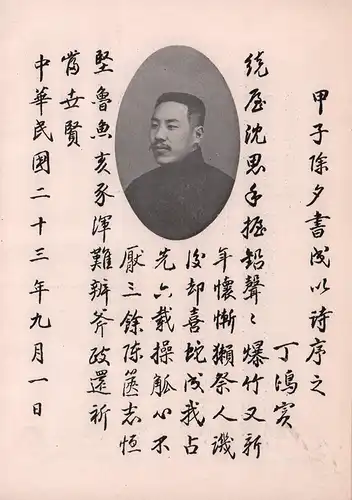 甲子除夕書成以詩序之
丁鴻宾
繞屋沈思手握鉛聲〻爆竹又新
年懷慚獺祭人譏
後却喜蛇成我占
先六載操觚心不
厭三餘陈箧志恒
堅魯魚亥豕渾難辨斧政還祈
當世賢
中華民國二十三年九月一日